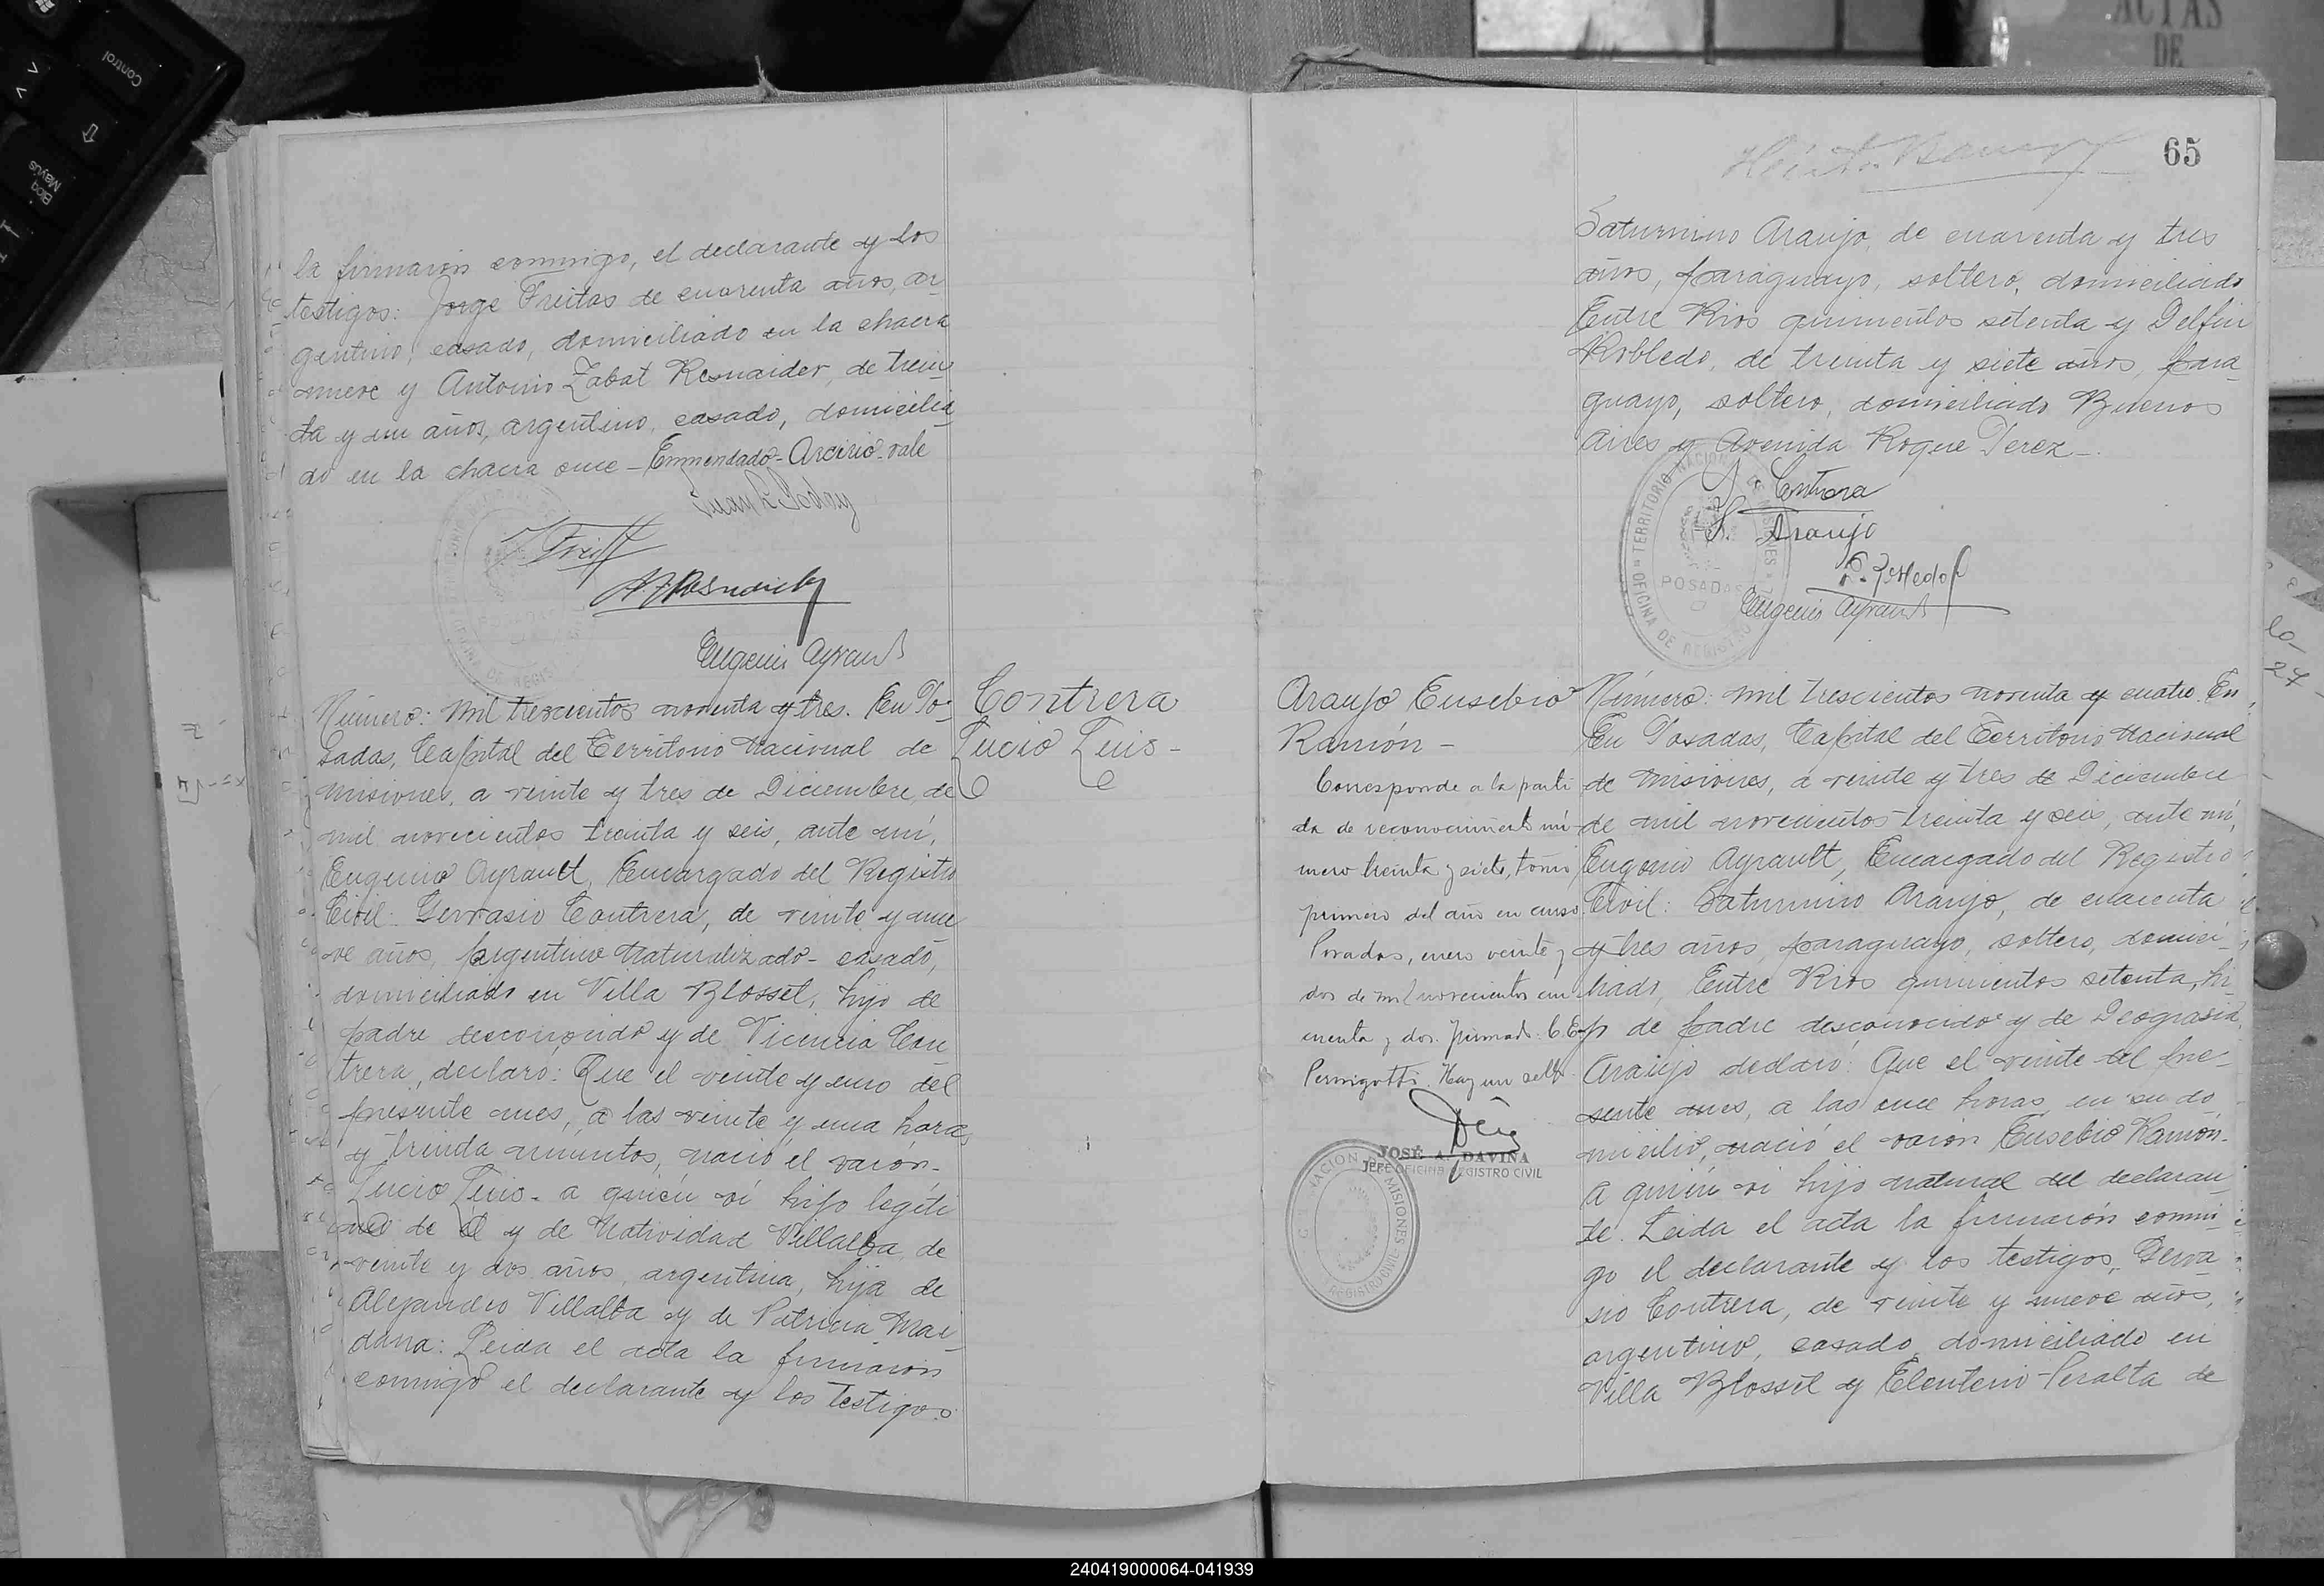 Control
Bloq
Mayús
ACTAS
DE
la firmaron conmigo, el declarante y los
testigos: Jorge Freitas de cuarenta años, ar
gentino, casado, domiciliado en la chacra
nueve y Antonio Zabat Resnaider, de trein
ta y un años, argentino, casado, domicilia
do en la chacra once - Enmendado - Arcirio - vale
Eugenio Ayrault
Contrera
Lucio Luis -
Número: mil trescientos noventa y tres. En Po-
sadas, Capital del Territorio Nacional de
Misiones, a veinte y tres de Diciembre, de
mil novecientos treinta y seis, ante mí,
Eugenio Ayrault, Encargado del Registro
Civil: Gervasio Contrera, de veinte y nue
ve años, Argentino Naturalizado - casado,
domiciliado en Villa Blosset, hijo de
padre desconocido y de Vicencia Con
trera, declaró: Que el veinte y uno del
presente mes, a las veinte y una hora
y treinda minutos, nació el varón-
Lucio Luis - a quién ví hijo legíti
mo de él y de Natividad Villalba, de
veinte y dos años, argentina, hija de
Alejandro Villalba y de Patricia Mai
dana: Leida el acta la firmaron
conmigo el declarante y los testigos:
65
Saturnino Araujo, de cuarenta y tres
años, paraguayo, soltero, domiciliado
Entre Rios quinientos setenta y Delfin
Robledo, de treinta y siete años, para
guayo, soltero, domiciliado Buenos
Aires y Avenida Roque Perez -.
Contrera
S. Araujo
Eugenio Ayrault
OFICINA DE REGISTRO
TERRITORIO NACIONAL DE MISIONES
POSADAS
Araujo Eusebio
Ramón -
Corresponde a la parti
da de reconocimiento nú-
mero treinta y siete, tomo
primero del año en curso
Posadas, enero veinte y
dos de mil novecientos cin
cuenta y dos. Firmado: C. E.
Pernigotti. Hay un sello
JOSÉ A. DAVIÑA
JEFE OFICINA REGISTRO CIVIL
Número: mil trescientos noventa y cuatro. En
En Posadas, Capital del Territorio Nacional
de Misiones, a veinte y tres de Diciembre
de mil novecientos treinta y seis, ante mí,
Eugenio Ayrault, Encargado del Registro
Civil: Saturnino Araujo, de cuarenta
y tres años, paraguayo, soltero, domici-
liado, Entre Rios quinientos setenta, hi
jo de padre desconocido y de Deogracia
Araujo declaró: Que el veinte del pre-
sente mes, a las once horas, en su do
micilio, nació el varón Eusebio Ramón-
a quién vi hijo natural del declaran
te. Leida el acta la firmaron conmi-
go el declarante y los testigos, Gerva
sio Contrera, de veinte y nueve años,
argentino, casado, domiciliado en
Villa Blosset y Eleuterio Peralta de
240419000064-041939